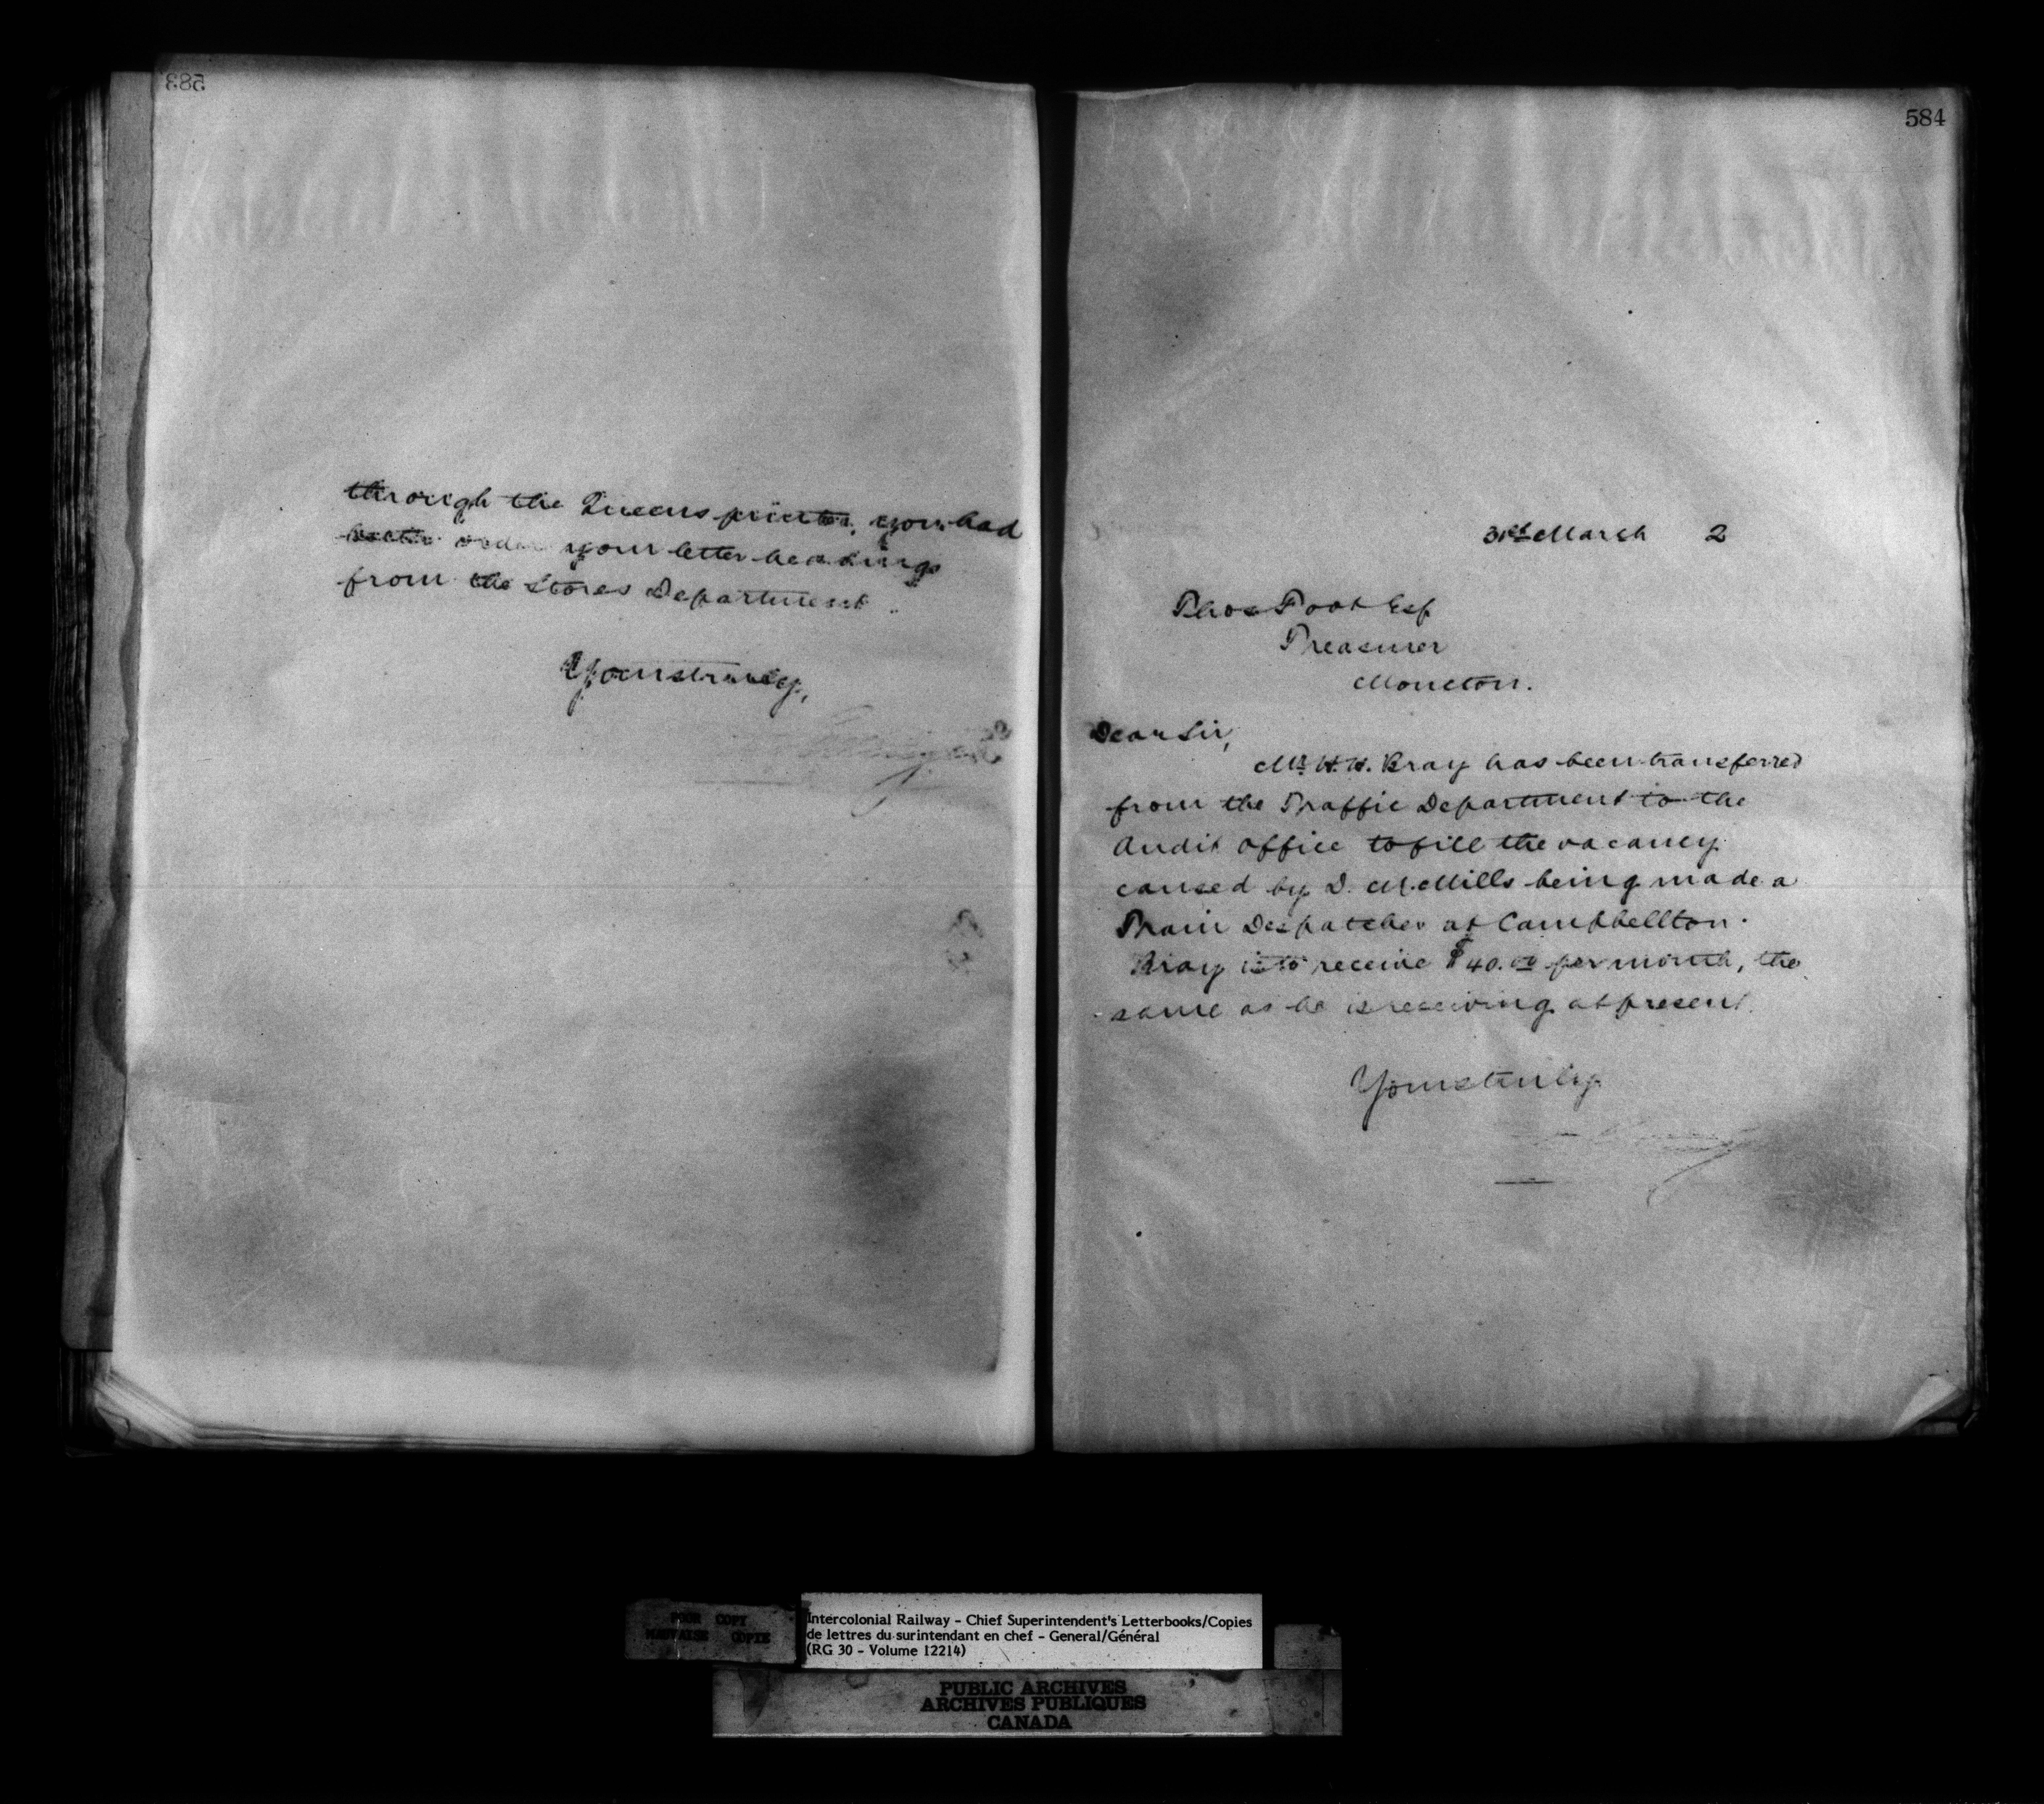 583
through the Queens printer, you had
better order your letter headings
from the Stores Department.
Yours truly,
584
31st March 2
Thos Foot Esq
Treasurer
Moncton.
Dear Sir,
Mr W. H. Bray has been transferred
from the Traffic Department to the
Audit Office to fill the vacancy
caused by D. McMills being made a
Train Despatcher at Campbellton.
Bray is to receive $40.00 per month, the
same as he is receiving at present.
Yours truly
POOR COPY
MAUVAISE COPIE
Intercolonial Railway - Chief Superintendent's Letterbooks/Copies
de lettres du surintendant en chef - General/Général
(RG 30 - Volume 12214)
PUBLIC ARCHIVES
ARCHIVES PUBLIQUES
CANADA